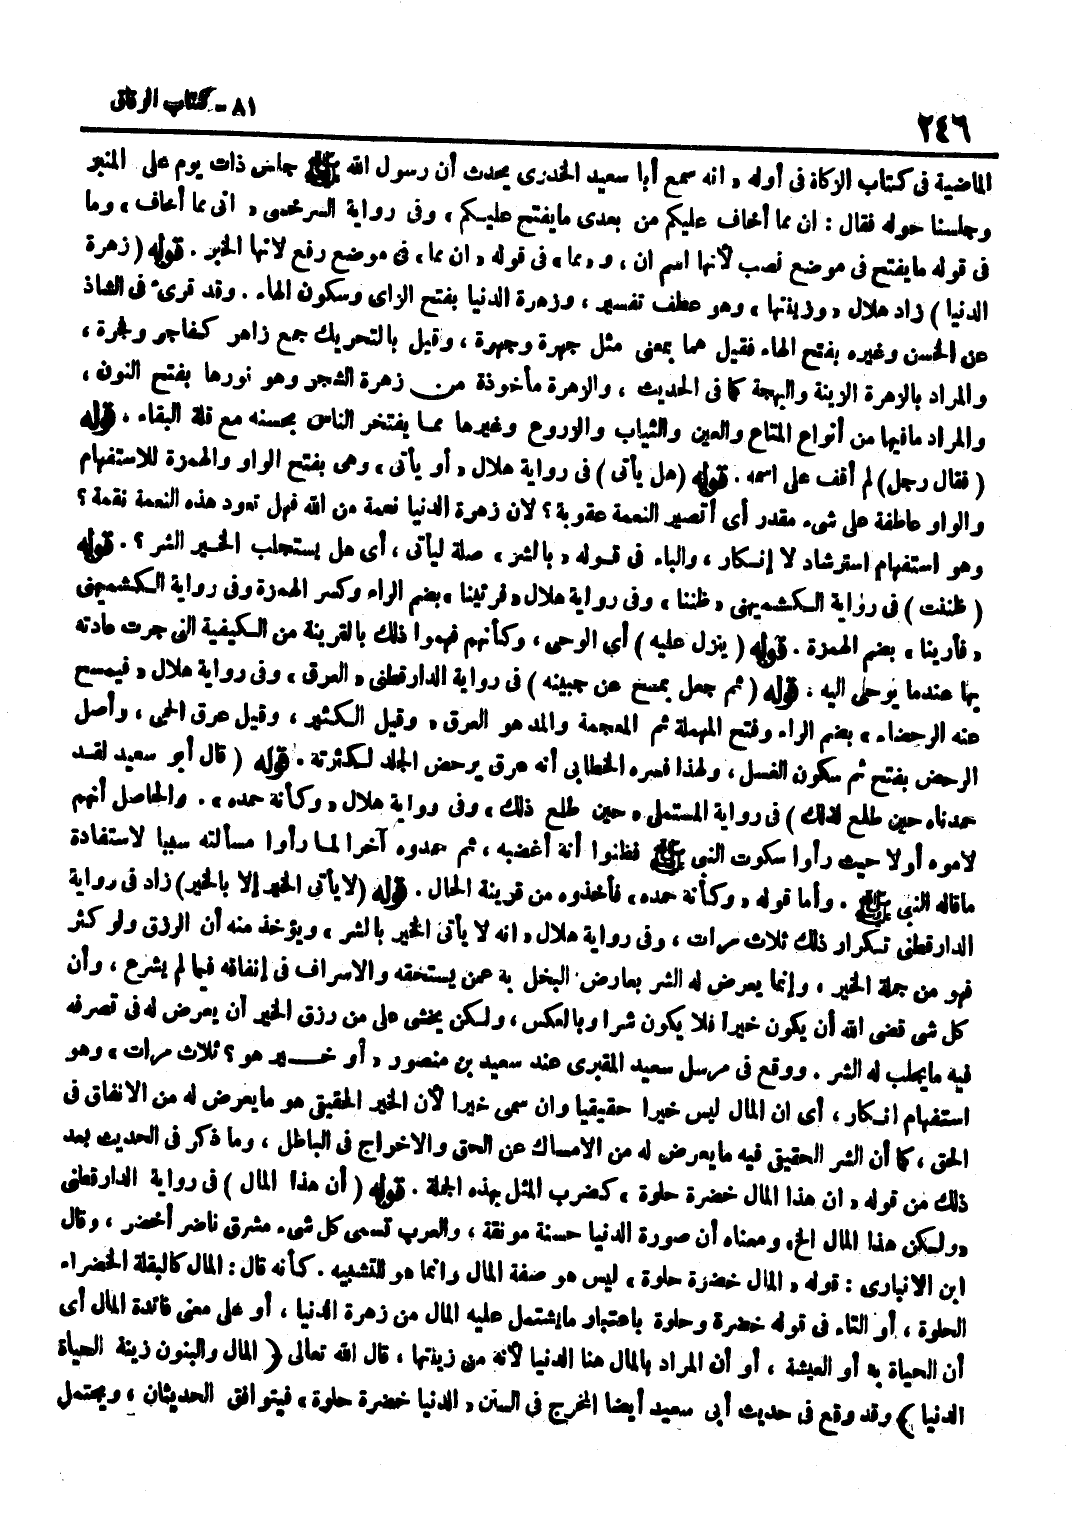 ٨١ - كتاب الرقاق
٢٤٦
الماضية فى كتاب الزكاة فى أوله « انه سمع أبا سعيد الخدرى يحدث أن رسول الله ﷺ جلس ذات يوم على المنبر
وجلسنا حوله فقال : ان مما أخاف عليكم من بعدى مايفتح عليكم ، وفى رواية السرخسى « انى مما أخاف ، وما
فى قوله مايفتح فى موضع نصب لأنها اسم ان ، و« مما » فى قوله « ان مما ، فى موضع رفع لانها الخبر . قوله ( زهرة
الدنيا ) زاد هلال « وزينتها » وهو عطف تفسير ، وزهرة الدنيا بفتح الزاى وسكون الهاء . وقد قرىء فى الشاذ
عن الحسن وغيره بفتح الهاء فقيل هما بمعنى مثل جهرة وجهرة ، وقيل بالتحريك جمع زاهر كفاجر وفجرة ،
والمراد بالزهرة الزينة والبهجة كما فى الحديث ، والزهرة مأخوذة من زهرة الشجر وهو نورها بفتح النون ،
والمراد مافيها من أنواع المتاع والعين والثياب والزروع وغيرها مما يفتخر الناس بحسنه مع قلة البقاء . قوله
( فقال رجل) لم أقف على اسمه . قوله (هل يأتى ) فى رواية هلال « أو يأتى » وهى بفتح الواو والهمزة للاستفهام
والواو عاطفة على شىء مقدر أى أتصير النعمة عقوبة ؟ لان زهرة الدنيا نعمة من الله فهل تعود هذه النعمة نقمة ؟
وهو استفهام استرشاد لا إنكار ، والباء فى قوله « بالشر » صلة ليأتى ، أى هل يستجلب الخير الشر ؟ . قوله
( ظننت ) فى رواية الكشميهنى « ظننا » وفى رواية هلال « فرئينا » بضم الراء وكسر الهمزة وفى رواية الكشميهنى
« فأرينا » بضم الهمزة . قوله ( ينزل عليه ) أي الوحى ، وكأنهم فهموا ذلك بالقرينة من الكيفية التى جرت عادته
بها عندما يوحى اليه . قوله ( ثم جعل يمسح عن جبينه ) فى رواية الدارقطنى « العرق » وفى رواية هلال « فيمسح
عنه الرحضاء » بضم الراء وفتح المهملة ثم المعجمة والمد هو العرق « وقيل الكثير ، وقيل عرق الحمى ، وأصل
الرحض بفتح ثم سكون الغسل ، ولهذا فسره الخطابى أنه عرق يرحض الجلد لكثرته . قوله ( قال أبو سعيد لقد
حمدناه حين طلع لذلك ) فى رواية المستملى « حين طلع ذلك » وفى رواية هلال « وكأنه حمده » . والحاصل أنهم
لاموه أولا حيث رأوا سكوت النبى ﷺ فظنوا أنه أغضبه ، ثم حمدوه آخرا لما رأوا مسألته سببا لاستفادة
ماقاله النبى ﷺ . وأما قوله « وكأنه حمده » فأخذوه من قرينة الحال . قوله (لا يأتى الخير إلا بالخير) زاد فى رواية
الدارقطنى تكرار ذلك ثلاث مرات ، وفى رواية هلال « انه لا يأتى الخير بالشر » ويؤخذ منه أن الرزق ولو كثر
فهو من جملة الخير ، وإنما يعرض له الشر بعارض البخل به عمن يستحقه والاسراف فى إنفاقه فيما لم يشرع ، وأن
كل شى قضى الله أن يكون خيرا فلا يكون شرا وبالعكس ، ولكن يخشى على من رزق الخير أن يعرض له فى تصرفه
فيه مايجلب له الشر . ووقع فى مرسل سعيد المقبرى عند سعيد بن منصور « أو خير هو ؟ ثلاث مرات » وهو
استفهام انكار ، أى ان المال ليس خيرا حقيقيا وان سمى خيرا لأن الخير الحقيقى هو مايعرض له من الانفاق فى
الحق ، كما أن الشر الحقيقى فيه مايعرض له من الامساك عن الحق والاخراج فى الباطل ، وما ذكر فى الحديث بعد
ذلك من قوله « ان هذا المال خضرة حلوة » كضرب المثل بهذه الجملة . قوله ( أن هذا المال ) فى رواية الدارقطنى
« ولكن هذا المال الخ » ومعناه أن صورة الدنيا حسنة مونقة ، والعرب تسمى كل شىء مشرق ناضر أخضر ، وقال
ابن الانبارى : قوله « المال خضرة حلوة » ليس هو صفة المال وانما هو للتشبيه . كأنه قال : المال كالبقلة الخضراء
الحلوة ، أو التاء فى قوله خضرة وحلوة باعتبار مايشتمل عليه المال من زهرة الدنيا ، أو على معنى فائدة المال أى
أن الحياة به أو العيشة ، أو أن المراد بالمال هنا الدنيا لأنه من زينتها ، قال الله تعالى ﴿ المال والبنون زينة الحياة
الدنيا ﴾ وقد وقع فى حديث أبى سعيد أيضا المخرج فى السنن « الدنيا خضرة حلوة » فيتوافق الحديثان ، ويحتمل